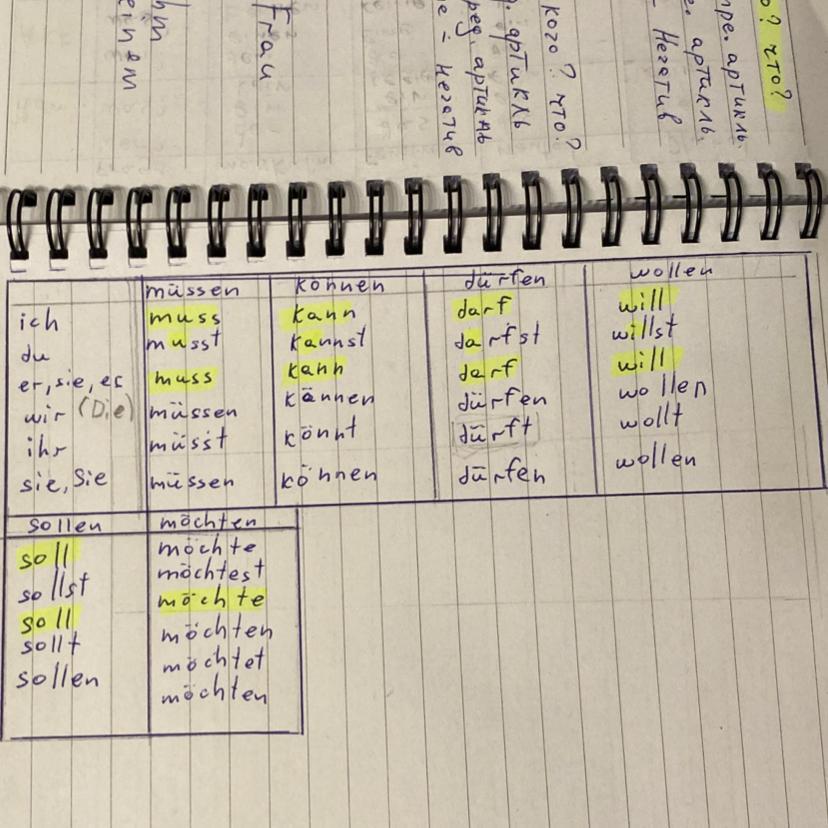 о? что?
пре. артикль
е. артикль.
- Негатив
кого? что?
артикль
пред. артикль
е = Негатив
Frau
hm
einem
müssen können dürfen wollen
ich muss kann darf will
du musst kannst darfst willst
er, sie, es muss kann darf will
wir (Die) müssen kännen dürfen wollen
ihr müsst könnt dürft wollt
sie, Sie müssen können dürfen wollen
sollen möchten
soll möchte
sollst möchtest
soll möchte
sollt möchten
sollen möchtet
möchten